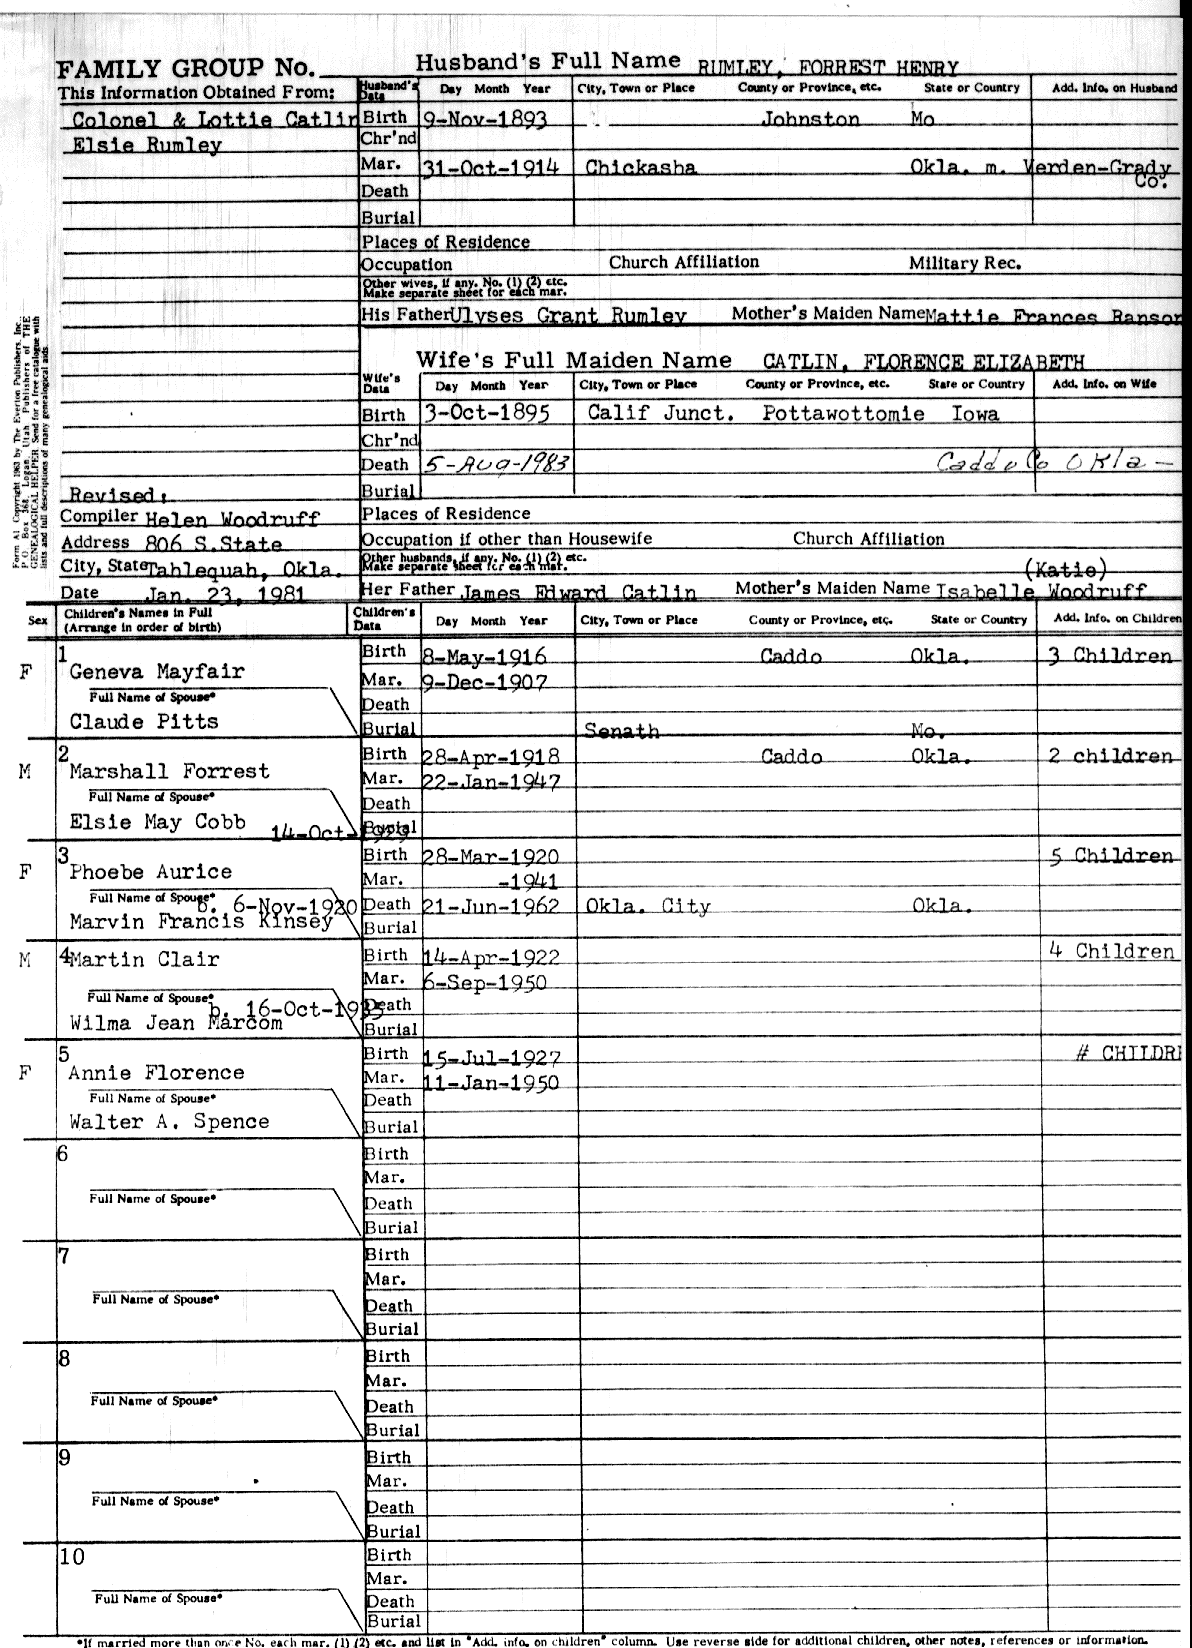 FAMILY GROUP No.
Husband's Full Name RUMLEY, FORREST HENRY
This Information Obtained From:
Husband's Data Day Month Year City, Town or Place County or Province, etc. State or Country Add. Info. on Husband
Colonel & Lottie Catlin Birth 9-Nov-1893 Johnston Mo
Elsie Rumley Chr'nd
Mar. 31-Oct-1914 Chickasha Okla. m. Verden-Grady Co.
Death
Burial
Places of Residence
Occupation Church Affiliation Military Rec.
Other wives, if any. No. (1) (2) etc.
Make separate sheet for each mar.
His Father Ulyses Grant Rumley Mother's Maiden Name Mattie Frances Ransom
Wife's Full Maiden Name CATLIN, FLORENCE ELIZABETH
Wife's Data Day Month Year City, Town or Place County or Province, etc. State or Country Add. Info. on Wife
Birth 3-Oct-1895 Calif Junct. Pottawottomie Iowa
Chr'nd
Death 5-AUG-1983 Caddo Co Okla-
Burial
Form A1 Copyright 1963 by The Everton Publishers, Inc.
P.O. Box 368, Logan, Utah Publishers of THE
GENEALOGICAL HELPER. Send for a free catalogue with
lists and full descriptions of many genealogical aids.
Revised:
Compiler Helen Woodruff Places of Residence
Address 806 S.State Occupation if other than Housewife Church Affiliation
City, State Tahlequah, Okla. Other husbands, if any. No. (1) (2) etc.
Make separate sheet for each mar.
(Katie)
Date Jan. 23, 1981 Her Father James Edward Catlin Mother's Maiden Name Isabelle Woodruff
Sex Children's Names in Full (Arrange in order of birth) Children's Data Day Month Year City, Town or Place County or Province, etc. State or Country Add. Info. on Children
1 Birth 8-May-1916 Caddo Okla. 3 Children
F Geneva Mayfair Mar. 9-Dec-1907
Full Name of Spouse* Death
Claude Pitts Burial Senath Mo.
2 Birth 28-Apr-1918 Caddo Okla. 2 children
M Marshall Forrest Mar. 22-Jan-1947
Full Name of Spouse* Death
Elsie May Cobb 14-Oct-1929 Burial
3 Birth 28-Mar-1920 5 Children
F Phoebe Aurice Mar. -1941
Full Name of Spouse* b. 6-Nov-1920 Death 21-Jun-1962 Okla. City Okla.
Marvin Francis Kinsey Burial
M 4 Martin Clair Birth 14-Apr-1922 4 Children
Mar. 6-Sep-1950
Full Name of Spouse* b. 16-Oct-1935 Death
Wilma Jean Marcom Burial
5 Birth 15-Jul-1927 # CHILDR
F Annie Florence Mar. 11-Jan-1950
Full Name of Spouse* Death
Walter A. Spence Burial
6 Birth
Mar.
Full Name of Spouse* Death
Burial
7 Birth
Mar.
Full Name of Spouse* Death
Burial
8 Birth
Mar.
Full Name of Spouse* Death
Burial
9 Birth
Mar.
Full Name of Spouse* Death
Burial
10 Birth
Mar.
Full Name of Spouse* Death
Burial
*If married more than once No. each mar. (1) (2) etc. and list in "Add. info. on children" column. Use reverse side for additional children, other notes, references or information.